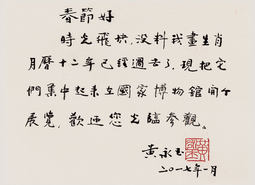 春節好
時光飛快,没料我畫生肖
月曆十二年已經過去了,現把它
們集中起來在國家博物館開个
展覽,歡迎您光臨參觀。
黃永玉
二〇一七年一月